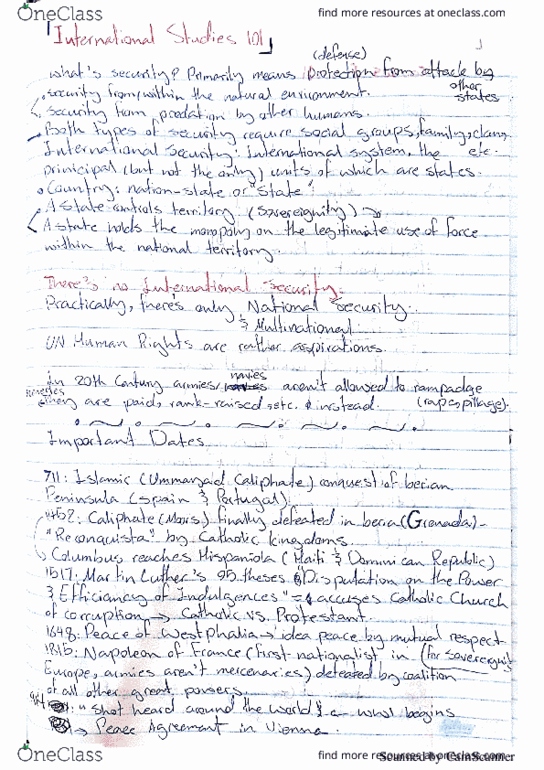 OneClass
find more resources at oneclass.com
International Studies 101
(defense)
what's security? Primarily means protection from attack by
other
states
security from/within the natural environment.
security from predation by other humans.
Both types of security require social groups, family, clan,
etc.
International Security: International system, the
prinicipal (but not the only) units of which are states.
Country: nation-state or "state".
A state controls territory (Sovereignity)
A state holds the monopoly on the legitimate use of force
within the national territory.
There's no International Security.
Practically, there's only National security.
& Multinational
UN Human Rights are rather aspirations.
navies
In 20th Century armies/ aren't allowed to rampadge
(rape, pillage).
they are paid, rank-raised, etc. instead.
Important Dates
711: Islamic (Ummayaid Caliphate) conquest of Iberian
Peninsula (Spain & Portugal)
Caliphate (Moors) finally defeated in Iberia (Grenada) -
"Reconquista" by Catholic kingdoms.
Columbus reaches Hispaniola (Haiti & Dominican Republic)
1517: Martin Luther's 95 theses "Disputation on the Power
& Efficiancy of Indulgences" accuses Catholic Church
of corruption → Catholic vs. Protestant.
1648: Peace of Westphalia → idea peace by mutual respect
(for sovereignity
1815: Napoleon of France (First nationalist in
Europe, armies aren't mercenaries) defeated by coalition
of all other great powers.
"shot heard around the world" what begins
→ Peace Agreement in Vienna.
OneClass
find more resources at oneclass.com
Scanned by CamScanner